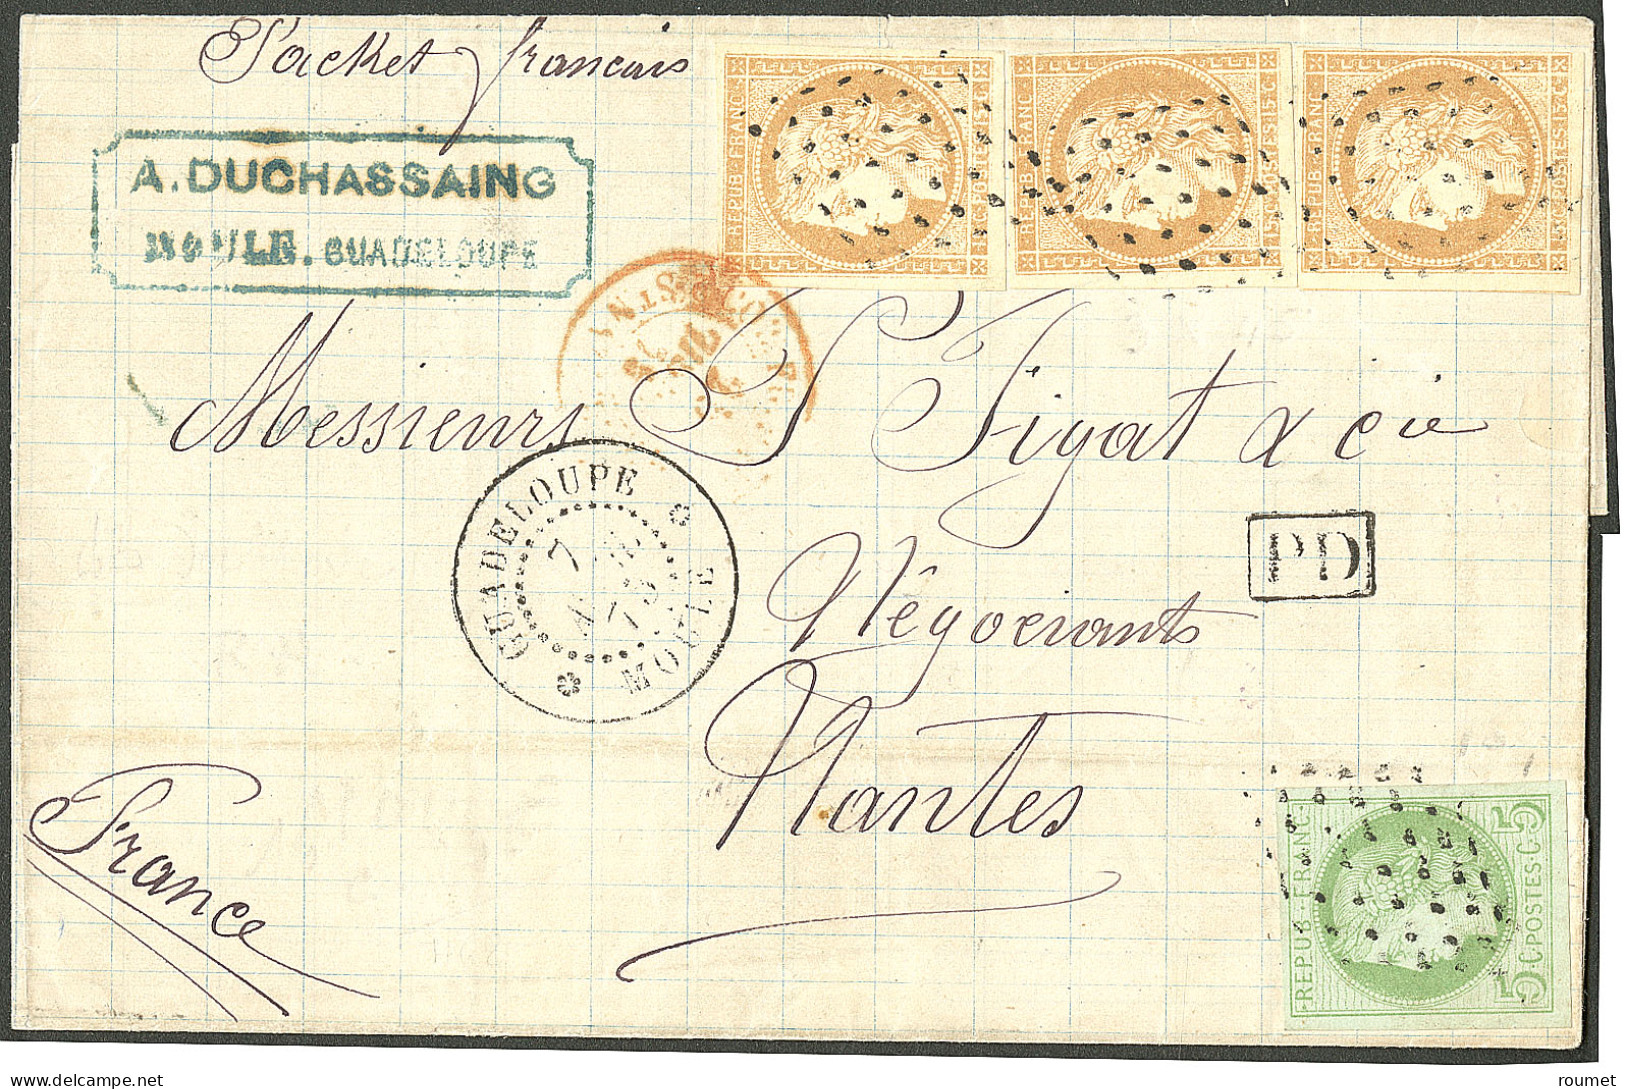 Packet français
A. DUCHASSAING
MOULE. GUADELOUPE
REPUB. FRANC.
15 C. POSTES 15 C.
REPUB. FRANC.
15 C. POSTES 15 C.
REPUB. FRANC.
15 C. POSTES 15 C.
Messieurs P Figat & cie
GUADELOUPE
7
MOULE
PD
Négociants
Nantes
France
REPUB. FRANC.
5 C. POSTES 5
roumet